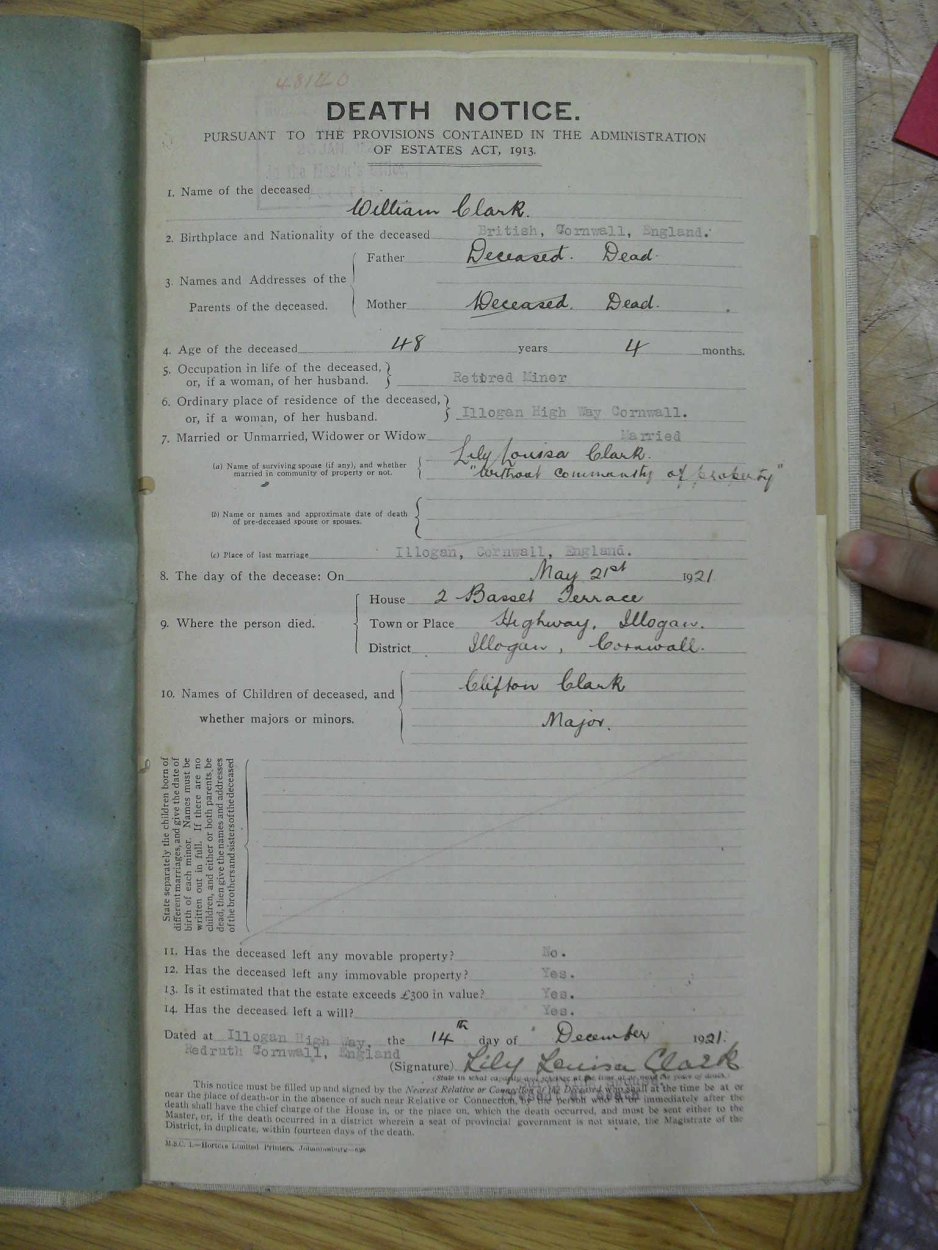 48140
DEATH NOTICE.
PURSUANT TO THE PROVISIONS CONTAINED IN THE ADMINISTRATION
OF ESTATES ACT, 1913.
1. Name of the deceased
William Clark.
2. Birthplace and Nationality of the deceased British, Cornwall, England.
3. Names and Addresses of the Parents of the deceased.
Father Deceased. Dead.
Mother Deceased. Dead.
4. Age of the deceased 48 years 4 months.
5. Occupation in life of the deceased,
or, if a woman, of her husband. Retired Minor
6. Ordinary place of residence of the deceased,
or, if a woman, of her husband. Illogan High Way Cornwall.
7. Married or Unmarried, Widower or Widow Married
(a) Name of surviving spouse (if any), and whether Lily Louisa Clark.
married in community of property or not. "Without community of property"
(b) Name or names and approximate date of death
of pre-deceased spouse or spouses.
(c) Place of last marriage Illogan, Cornwall, England.
8. The day of the decease: On May 21st 1921
9. Where the person died.
House 2 Basset Terrace
Town or Place Highway, Illogan.
District Illogan, Cornwall.
10. Names of Children of deceased, and
whether majors or minors.
Clifton Clark
Major.
State separately the children born of
different marriages, and give the date of
birth of each minor. Names must be
written out in full. If there are no
children, and either or both parents, be
dead, then give the names and addresses
of the brothers and sisters of the deceased
11. Has the deceased left any movable property? No.
12. Has the deceased left any immovable property? Yes.
13. Is it estimated that the estate exceeds £300 in value? Yes.
14. Has the deceased left a will? Yes.
Dated at Illogan High Way, the 14th day of December 1921.
Redruth Cornwall, England
(Signature) Lily Louisa Clark
This notice must be filled up and signed by the Nearest Relative or Connection of the Deceased who shall at the time be at or
near the place of death—or in the absence of such near Relative or Connection, by the person who at or immediately after the
death shall have the chief charge of the House in, or the place on, which the death occurred, and must be sent either to the
Master, or, if the death occurred in a district wherein a seat of provincial government is not situate, the Magistrate of the
District, in duplicate, within fourteen days of the death.
Hortors Limited Printers, Johannesburg